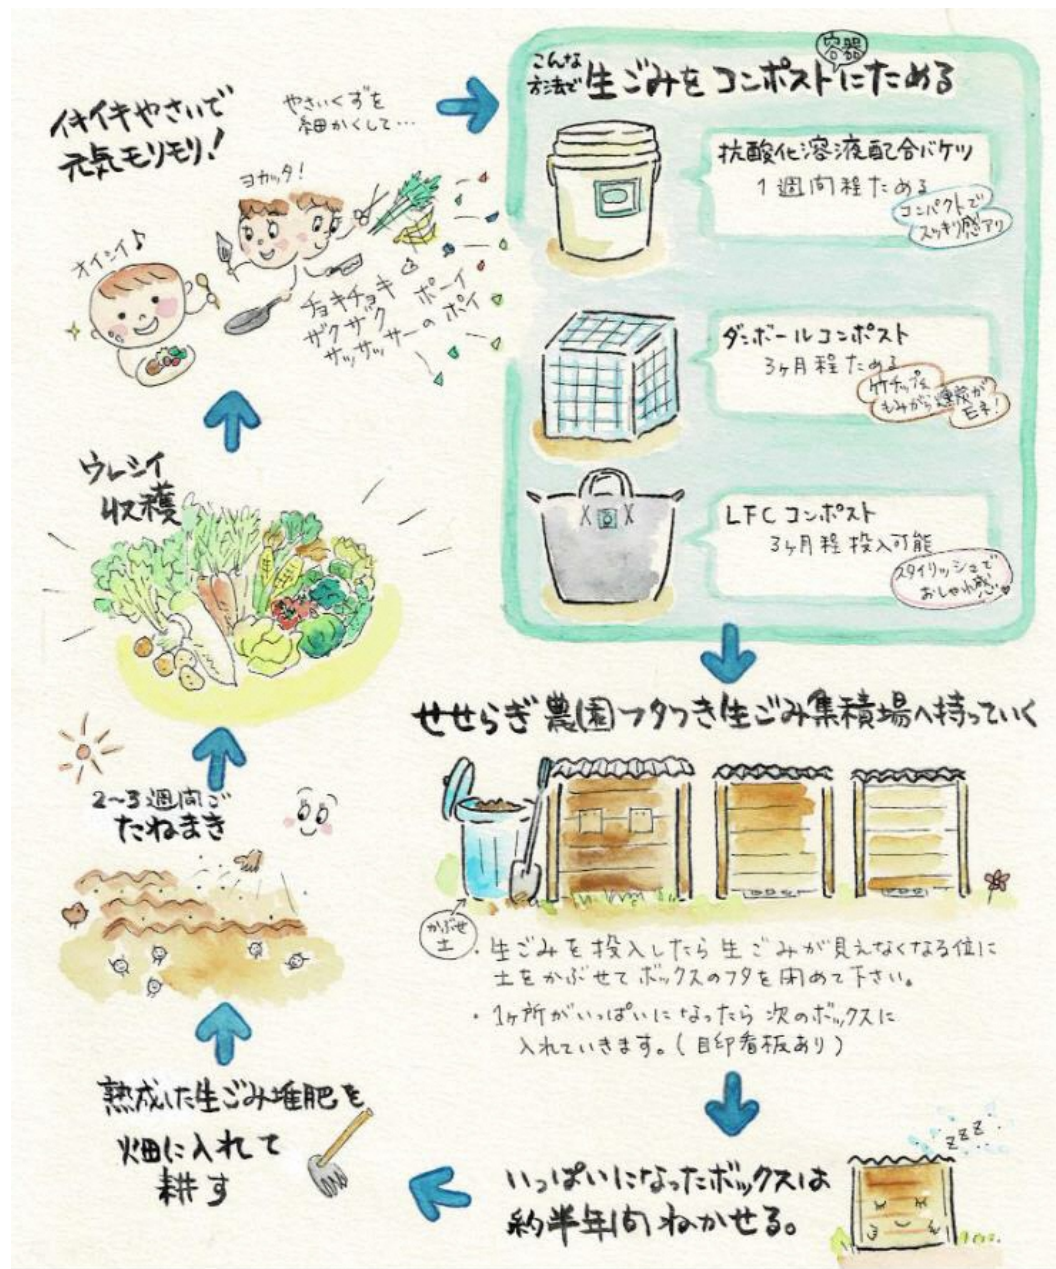 イキイキやさいで
元気モリモリ!
やさいくずを
細かくして…
ヨカッタ!
オイシイ♪
チョキチョキ
ザクザク
サッサッサーの
ポーイ
ポイ
こんな
方法で
生ごみをコンポストにためる
容器
抗酸化溶液配合バケツ
1週間程ためる
コンパクトで
スッキリ感アリ
ダンボールコンポスト
3ヶ月程ためる
竹チップと
もみがら燻炭が
モト!
LFCコンポスト
3ヶ月程投入可能
スタイリッシュで
おしゃれ感
せせらぎ農園フタつき生ごみ集積場へ持っていく
かぶせ
土
・生ごみを投入したら生ごみが見えなくなる位に
土をかぶせてボックスのフタを閉めて下さい。
・1ヶ所がいっぱいになったら次のボックスに
入れていきます。(目印看板あり)
いっぱいになったボックスは
約半年間ねかせる。
zzz
熟成した生ごみ堆肥を
畑に入れて
耕す
2~3週間ご
たねまき
ウレシイ
収穫